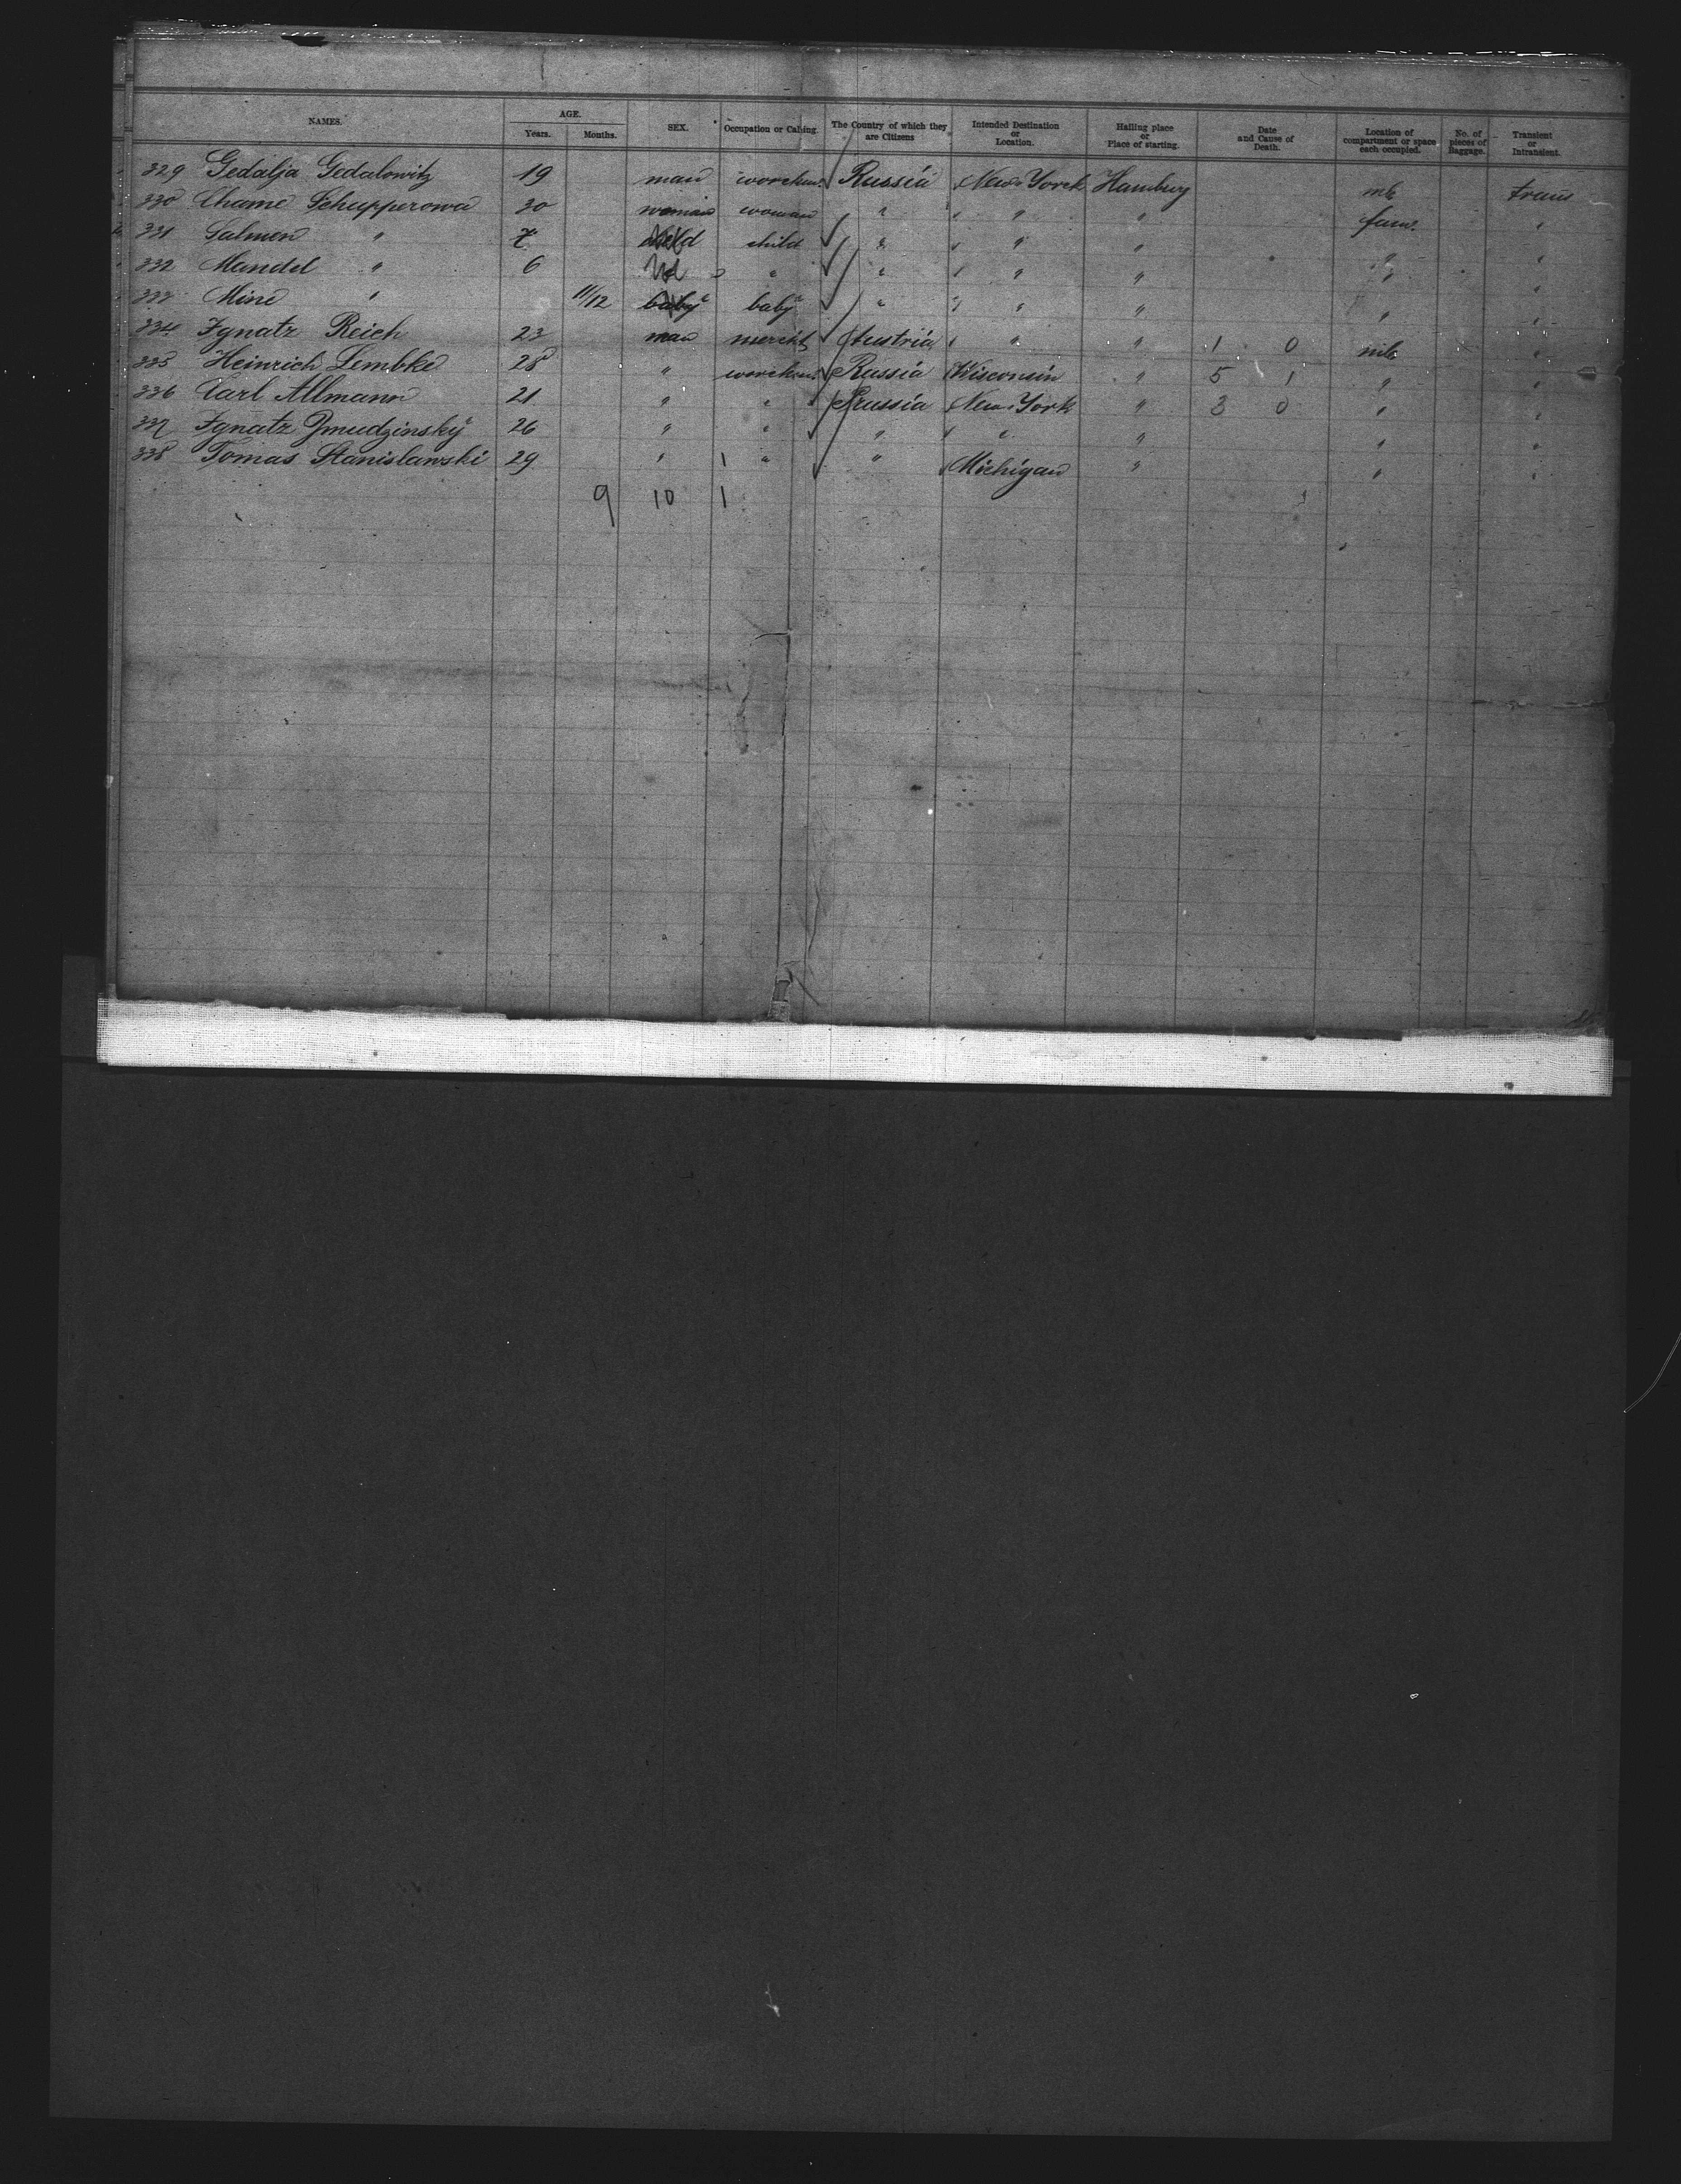 NAMES. AGE. Years. Months. SEX. Occupation or Calling. The Country of which they are Citizens Intended Destination or Location. Hailing place or Place of starting. Date and Cause of Death. Location of compartment or space each occupied. No. of pieces of Baggage. Transient or Intransient.
329 Gedalja Gedalowitz 19 man workm. Russia New Yorck Hamburg trans
330 Chame Schupperowa 30 woman woman " " " " fam. "
331 Salmen " 7 child child " " " " "
332 Mandel " 6 " " " " " "
333 Mine " 11/12 baby baby " " " " "
334 Ignatz Reich 23 man mercht Austria " " 1 0 "
335 Heinrich Lembke 28 " workm. Russia Wisconsin " 5 1 " "
336 Carl Allmann 21 " " Prussia New York " 3 0 " "
337 Ignatz Zmudzinsky 26 " " " " " " "
338 Tomas Stanislawski 29 " 1 " " Michigan " " "
9 10 1